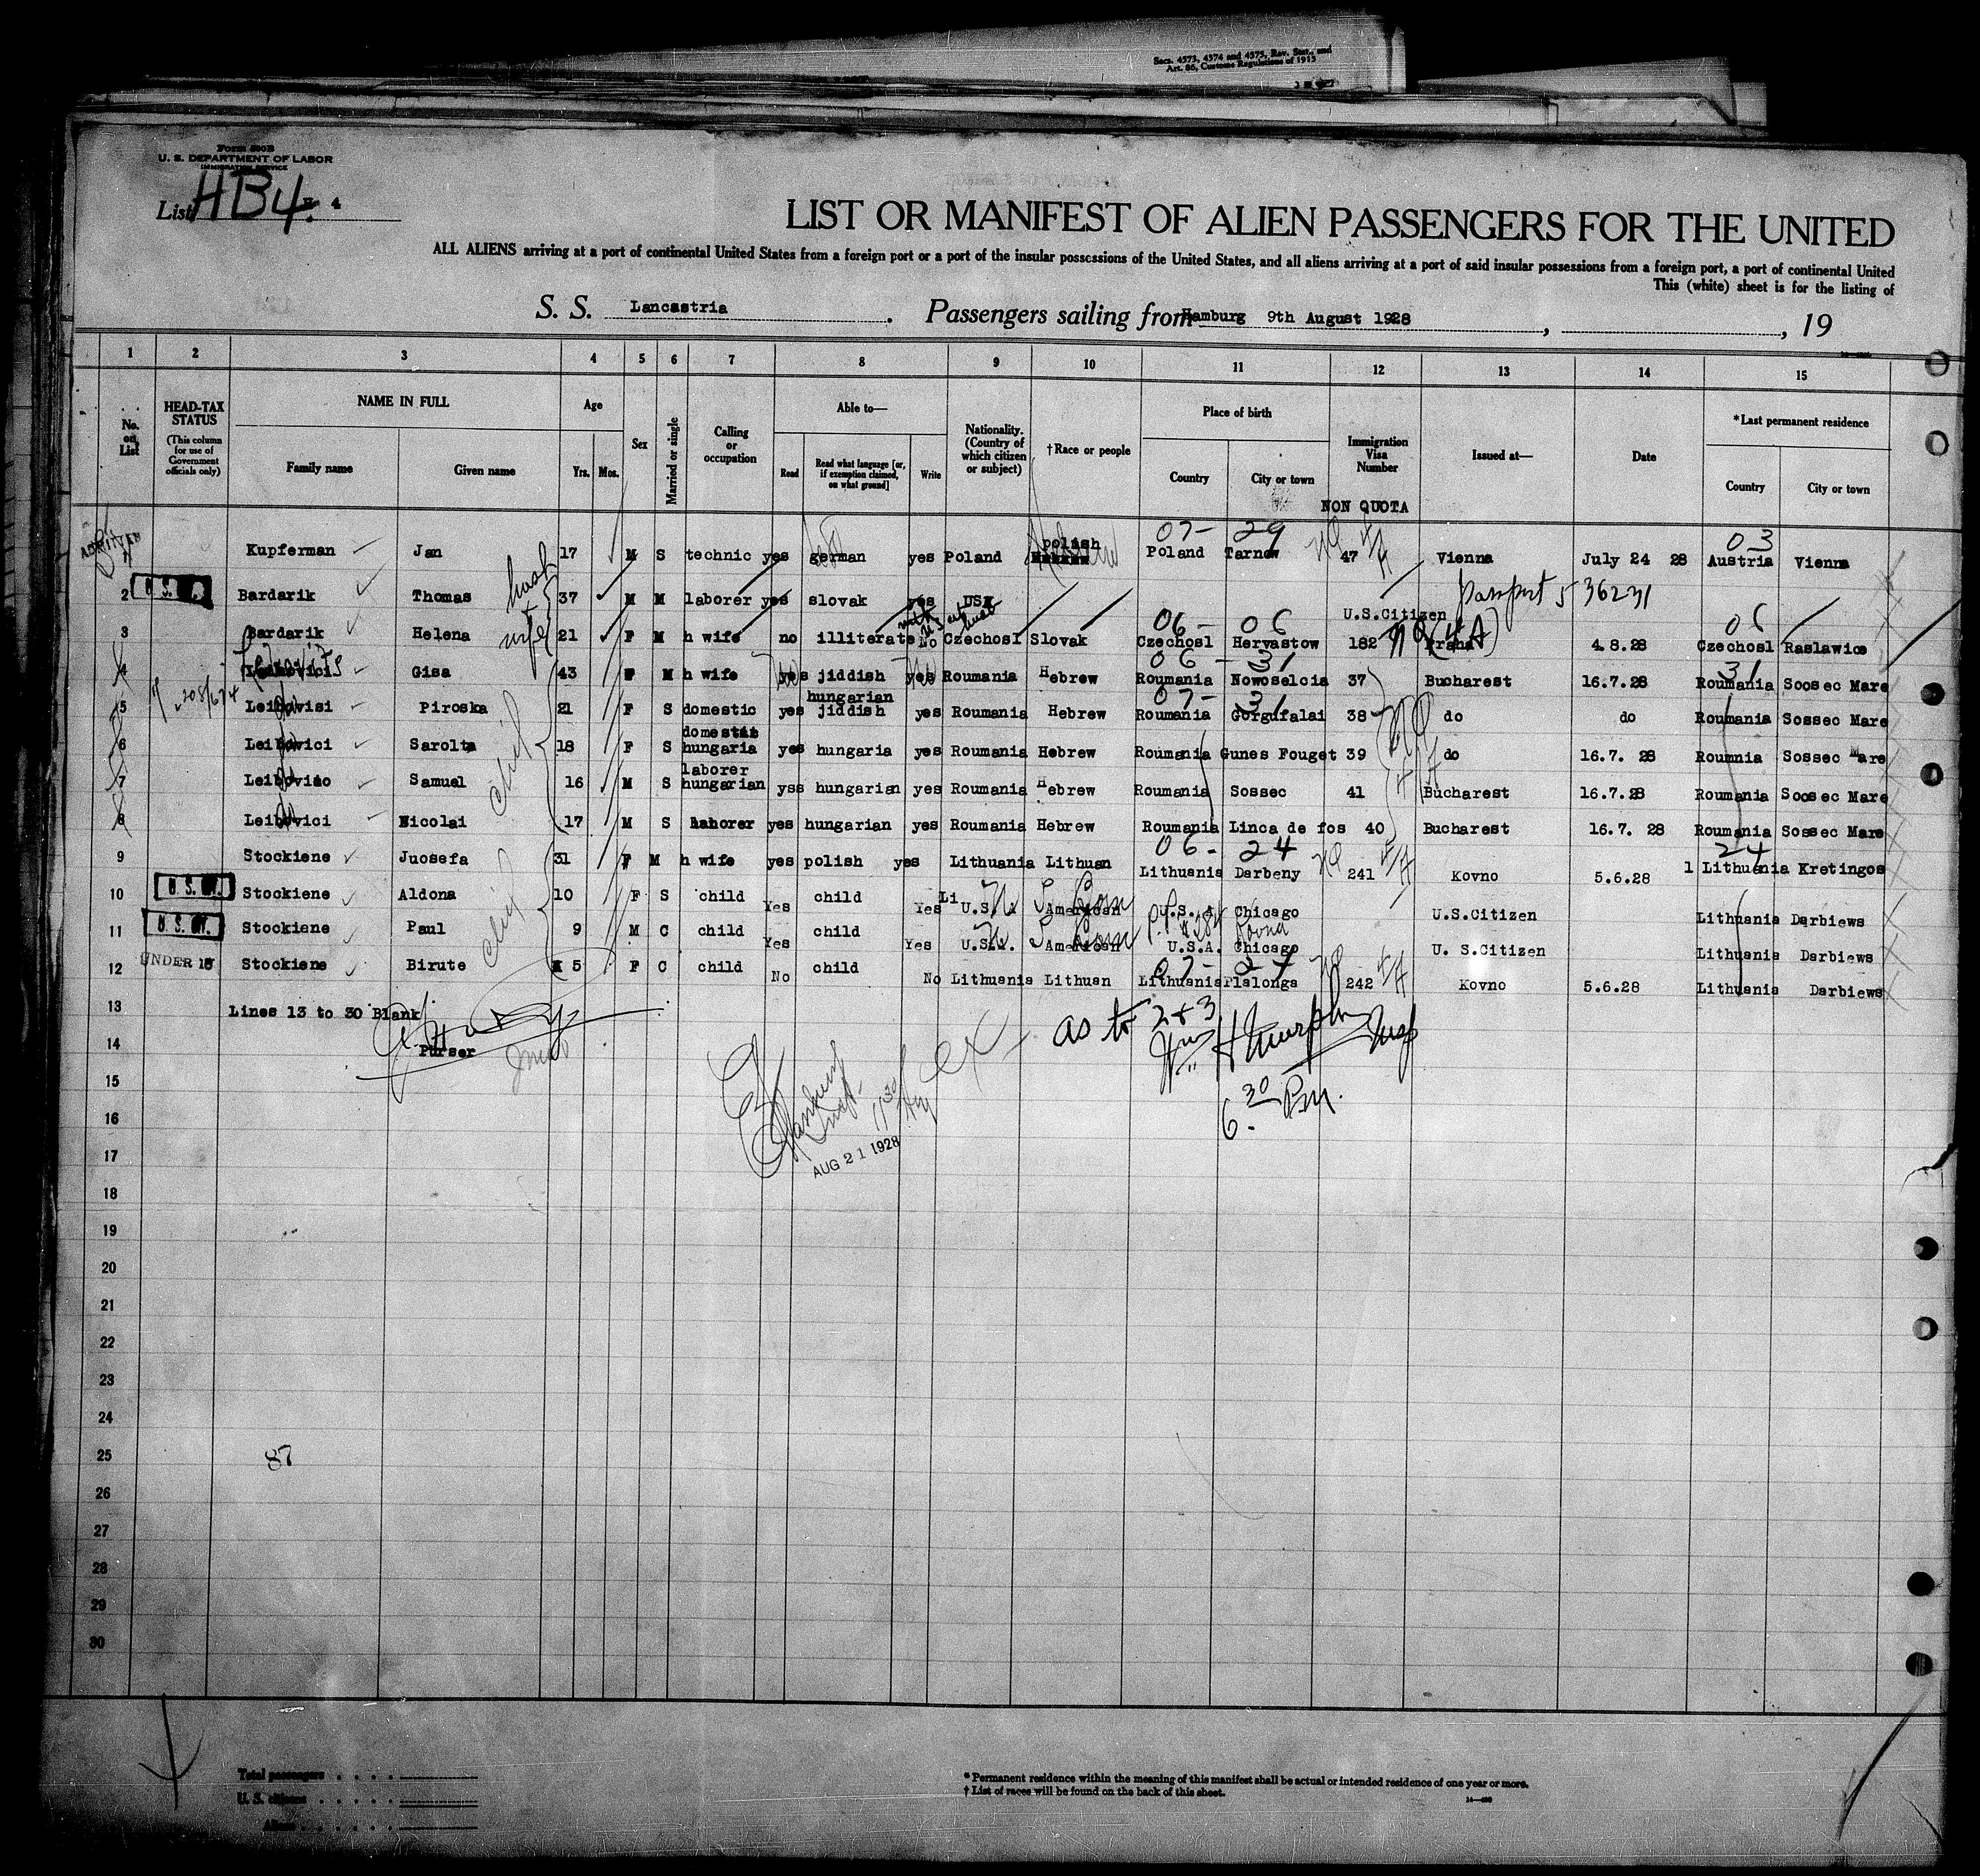 Secs. 4573, 4574 and 4575, Rev. Stat., and
Art. 86, Customs Regulations of 1915
Form 500B
U. S. DEPARTMENT OF LABOR
IMMIGRATION SERVICE
List HB4. 4
LIST OR MANIFEST OF ALIEN PASSENGERS FOR THE UNITED
ALL ALIENS arriving at a port of continental United States from a foreign port or a port of the insular possessions of the United States, and all aliens arriving at a port of said insular possessions from a foreign port, a port of continental United
This (white) sheet is for the listing of
S. S. Lancastria . Passengers sailing from Hamburg 9th August 1928 , , 19
1 2 3 4 5 6 7 8 9 10 11 12 13 14 15
No. on List
HEAD-TAX STATUS (This column for use of Government officials only)
NAME IN FULL Family name Given name
Age Yrs. Mos.
Sex
Married or single
Calling or occupation
Able to— Read Read what language [or, if exemption claimed, on what ground] Write
Nationality. (Country of which citizen or subject)
†Race or people
Place of birth Country City or town
Immigration Visa Number NON QUOTA
Issued at—
Date
*Last permanent residence Country City or town
ADMITTED 07- 29 03
Kupferman Jan 17 M S technic yes german yes Poland polish Hebrew Poland Tarnow 47 Vienna July 24 28 Austria Vienna
2 U. S. Bardarik Thomas husb 37 M M laborer yes slovak yes USA U.S.Citizen Passport 536231
06- 06 06
3 Bardarik Helena wife 21 F M h wife no illiterate No Czechosl Slovak Czechosl Hervastow 182 Praha 4.8.28 Czechosl Raslawice
06 - 31 31
4 Leibovici Gisa 43 F M h wife yes jiddish yes Roumania Hebrew Roumania Nowoselcia 37 Bucharest 16.7.28 Roumania Soosec Mare
07- 31
5 Leibovisi Piroska 21 F S domestic yes hungarian jiddish yes Roumania Hebrew Roumania Gorgufalai 38 do do Roumania Sossec Mare
6 Leibovici Sarolta 18 F S domestic hungaria yes hungaria yes Roumania Hebrew Roumania Gunes Fouget 39 do 16.7. 28 Roumnia Sossec Mare
7 Leibovico Samuel 16 M S laborer hungarian yss hungarian yes Roumania Hebrew Roumania Sossec 41 Bucharest 16.7.28 Roumania Soosec Mare
8 Leibovici Nicolai 17 M S laborer yes hungarian yes Roumania Hebrew Roumania Linca de fos 40 Bucharest 16.7. 28 Roumania Sossec Mare
06- 24 24
9 Stockiene Juosefa 31 F M h wife yes polish yes Lithuania Lithuan Lithuania Darbeny 241 Kovno 5.6.28 1 Lithuania Kretingos
10 Stockiene Aldona 10 F S child Yes child Yes Li U.S.A. American U.S. Chicago U.S.Citizen Lithuania Darbiews
11 Stockiene Paul 9 M C child Yes child Yes U.S.A. American U.S.A. Chicago U. S.Citizen Lithuania Darbiews
07- 24
12 UNDER 16 Stockiene Birute 5 F C child No child No Lithuania Lithuan Lithuania Plalonga 242 Kovno 5.6.28 Lithuania Darbiews
13 Lines 13 to 30 Blank
14 Purser
as to 2 & 3
Wm H Murphy Insp
6 30 P.M.
AUG 21 1928
15
16
17
18
19
20
21
22
23
24
25 87
26
27
28
29
30
Total passengers
U. S. citizens
Aliens
* Permanent residence within the meaning of this manifest shall be actual or intended residence of one year or more.
† List of races will be found on the back of this sheet.